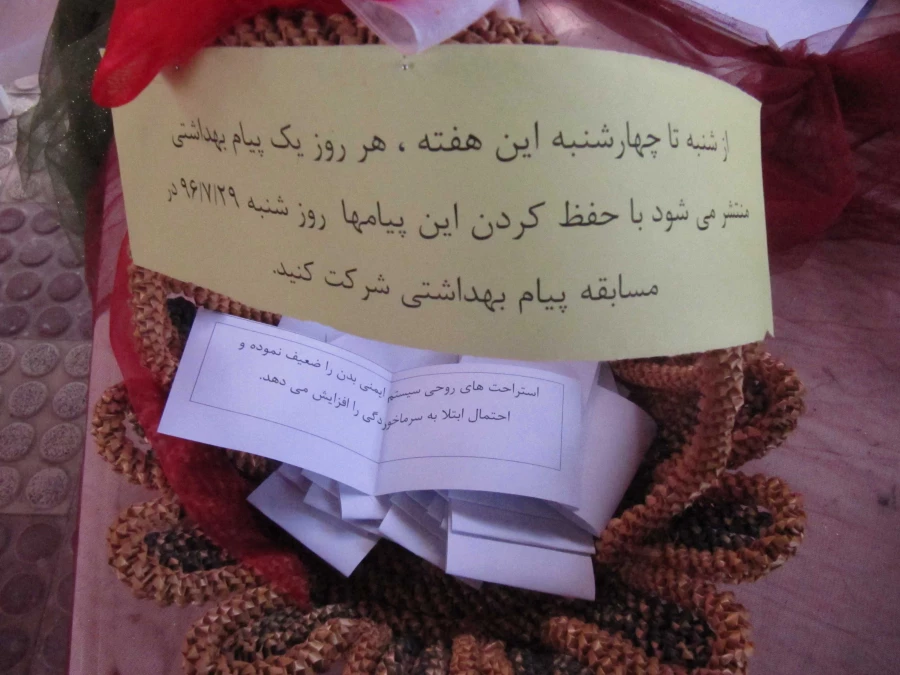 از شنبه تا چهارشنبه این هفته ، هر روز یک پیام بهداشتی
منتشر می شود با حفظ کردن این پیامها روز شنبه ۹۶/۷/۲۹ در
مسابقه پیام بهداشتی شرکت کنید.
استراحت های روحی سیستم ایمنی بدن را ضعیف نموده و
احتمال ابتلا به سرماخوردگی را افزایش می دهد.